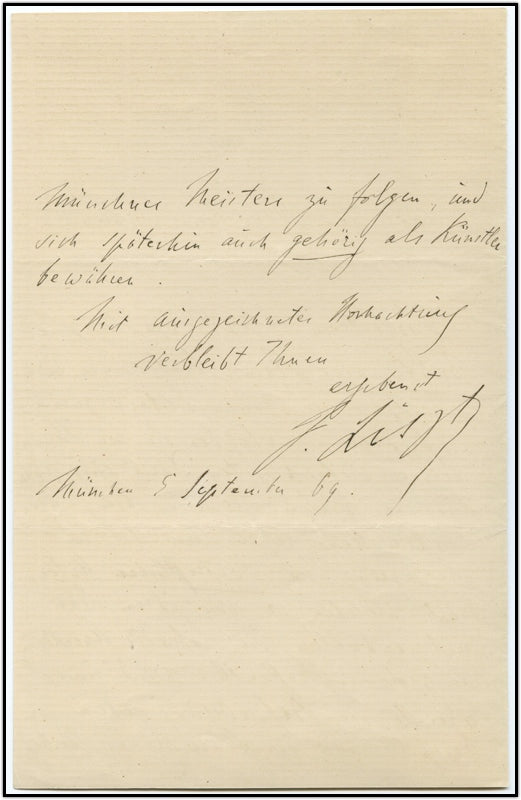 Münchner Meistern zu folgen, und
sich späterhin auch gehörig als Künstler
bewähren.
Mit ausgezeichneter Hochachtung
verbleibt Ihnen
ergebenst
F. Liszt
München 5 September 69.